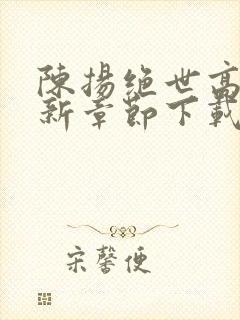 陳揚绝世高
新章節下載
宋馨便